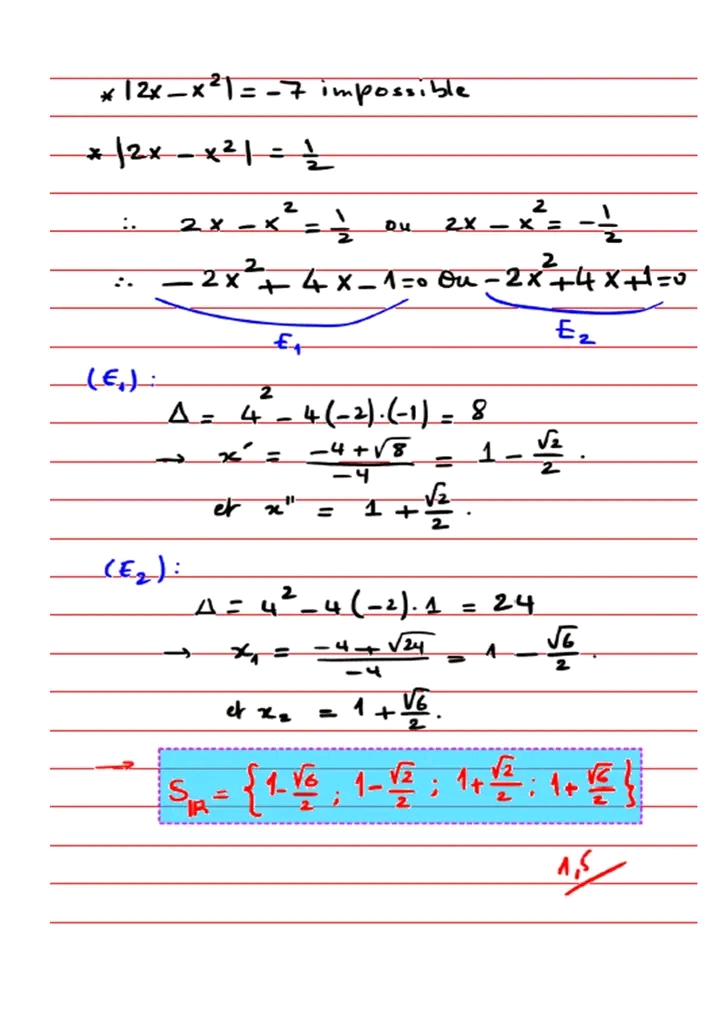 * |2x - x²| = -7 impossible
* |2x - x²| = 1/2
∴ 2x - x² = 1/2 ou 2x - x² = -1/2
∴ -2x² + 4x - 1 = 0 ou -2x² + 4x + 1 = 0
E₁ E₂
(E₁) :
Δ = 4² - 4(-2).(-1) = 8
→ x' = (-4 + √8)/(-4) = 1 - √2/2 .
et x'' = 1 + √2/2 .
(E₂) :
Δ = 4² - 4(-2).1 = 24
→ x₁ = (-4 + √24)/(-4) = 1 - √6/2 .
et x₂ = 1 + √6/2 .
→ S_IR = {1 - √6/2 ; 1 - √2/2 ; 1 + √2/2 ; 1 + √6/2}
1,5